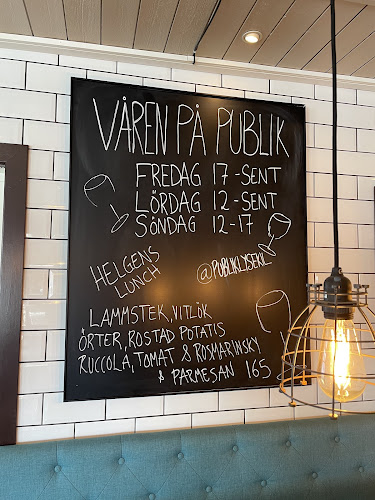 VÅREN PÅ PUBLIK
FREDAG 17-SENT
LÖRDAG 12-SENT
SÖNDAG 12-17
HELGENS
LUNCH
@PUBLIKLYSEKIL
LAMMSTEK, VITLÖK
ÖRTER, ROSTAD POTATIS
RUCCOLA, TOMAT & ROSMARINSKY
& PARMESAN 165